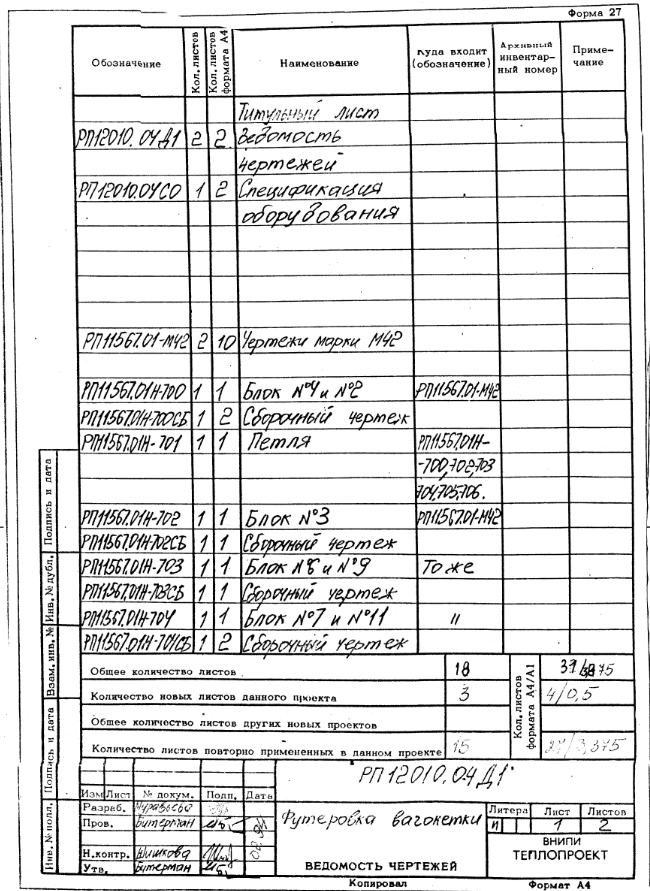 Форма 27
Обозначение Кол. листов Кол. листов формата А4 Наименование Куда входит (обозначение) Архивный инвентарный номер Примечание
Титульный лист
РП12010.04Д1 2 2 Ведомость
чертежей
РП12010.04СО 1 2 Спецификация
оборудования
РП11567.01-М42 2 10 Чертежи марки М42
РП11567.01Н-700 1 1 Блок №1 и №2 РП11567.01-М42
РП11567.01Н-700СБ 1 2 Сборочный чертеж
РП11567.01Н-701 1 1 Петля РП11567.01Н-
-700,702,703
704,705,706.
РП11567.01Н-702 1 1 Блок №3 РП11567.01-М42
РП11567.01Н-702СБ 1 1 Сборочный чертеж
РП11567.01Н-703 1 1 Блок №6 и №9 То же
РП11567.01Н-703СБ 1 1 Сборочный чертеж
РП11567.01Н-704 1 1 Блок №7 и №11 "
РП11567.01Н-704СБ 1 2 Сборочный чертеж
Общее количество листов 18
Количество новых листов данного проекта 3 4/0,5
Общее количество листов других новых проектов
Количество листов повторно примененных в данном проекте 15 27/3,375
Кол. листов формата А4/А1
РП12010.04Д1
Изм Лист № докум. Подп. Дата
Разраб.
Пров. Битерман
Н.контр. Шишкова
Утв. Битерман
Футеровка вагонетки
ВЕДОМОСТЬ ЧЕРТЕЖЕЙ
Литера Лист Листов
И 1 2
ВНИПИ
ТЕПЛОПРОЕКТ
Копировал Формат А4
Инв. № подл. Подпись и дата Взам. инв. № Инв. № дубл. Подпись и дата